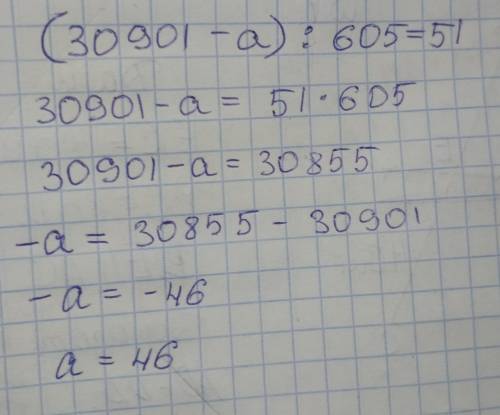 (30901 - a) : 605 = 51
30901 - a = 51 · 605
30901 - a = 30855
-a = 30855 - 30901
-a = -46
a = 46